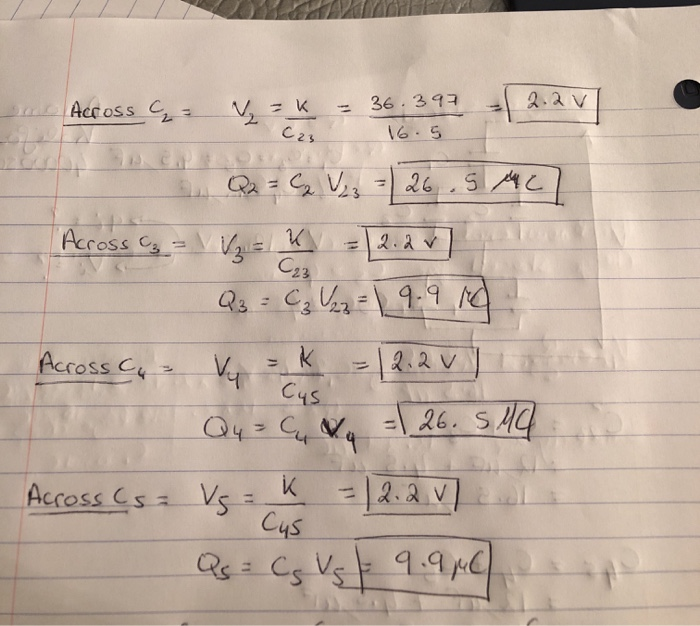 Across C₂ = V₂ = K / C₂₃ = 36.397 / 16.5 = 2.2 V
Q₂ = C₂ V₂₃ = 26.5 μC
Across C₃ = V₃ = K / C₂₃ = 2.2 V
Q₃ = C₃ V₂₃ = 9.9 μC
Across C₄ = V₄ = K / C₄₅ = 2.2 V
Q₄ = C₄ V₄ = 26.5 μC
Across C₅ = V₅ = K / C₄₅ = 2.2 V
Q₅ = C₅ V₅ = 9.9 μC